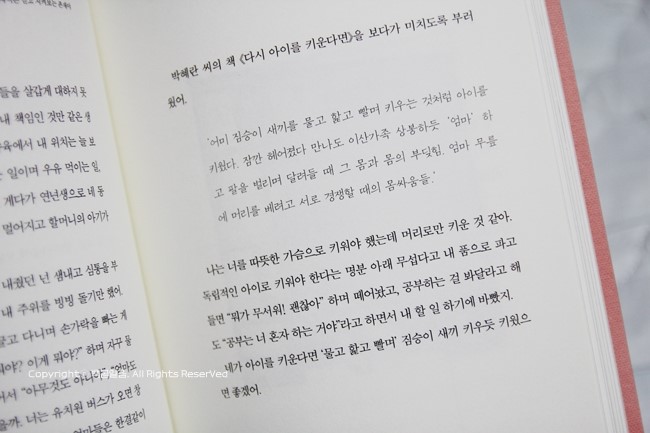 들을 살갑게 대하지 못
내 책임인 것만 같은 생
육에서 내 위치는 늘 보
일이며 우유 먹이는 일,
게다가 연년생으로 네 동
멀어지고 할머니의 아기가
내줬던 넌 샘내고 심통을 부
내 주위를 빙빙 돌기만 했어.
물고 다니며 손가락을 빠는 게
뭐야? 이게 뭐야?” 하며 자꾸 물
어서 “아무것도 아니야” “엄마도
을까. 너는 유치원 버스가 오면 창
엄마들은 한결같이
박혜란 씨의 책 《다시 아이를 키운다면》을 보다가 미치도록 부러
웠어.
‘어미 짐승이 새끼를 물고 핥고 빨며 키우는 것처럼 아이를
키웠다. 잠깐 헤어졌다 만나도 이산가족 상봉하듯 ‘엄마’ 하
고 팔을 벌리며 달려들 때 그 몸과 몸의 부딪힘. 엄마 무릎
에 머리를 베려고 서로 경쟁할 때의 몸싸움들.’
나는 너를 따뜻한 가슴으로 키워야 했는데 머리로만 키운 것 같아.
독립적인 아이로 키워야 한다는 명분 아래 무섭다고 내 품으로 파고
들면 “뭐가 무서워! 괜찮아” 하며 떼어놨고, 공부하는 걸 봐달라고 해
도 “공부는 너 혼자 하는 거야”라고 하면서 내 할 일 하기에 바빴지.
네가 아이를 키운다면 ‘물고 핥고 빨며’ 짐승이 새끼 키우듯 키웠으
면 좋겠어.
Copyright All Rights ReserVed